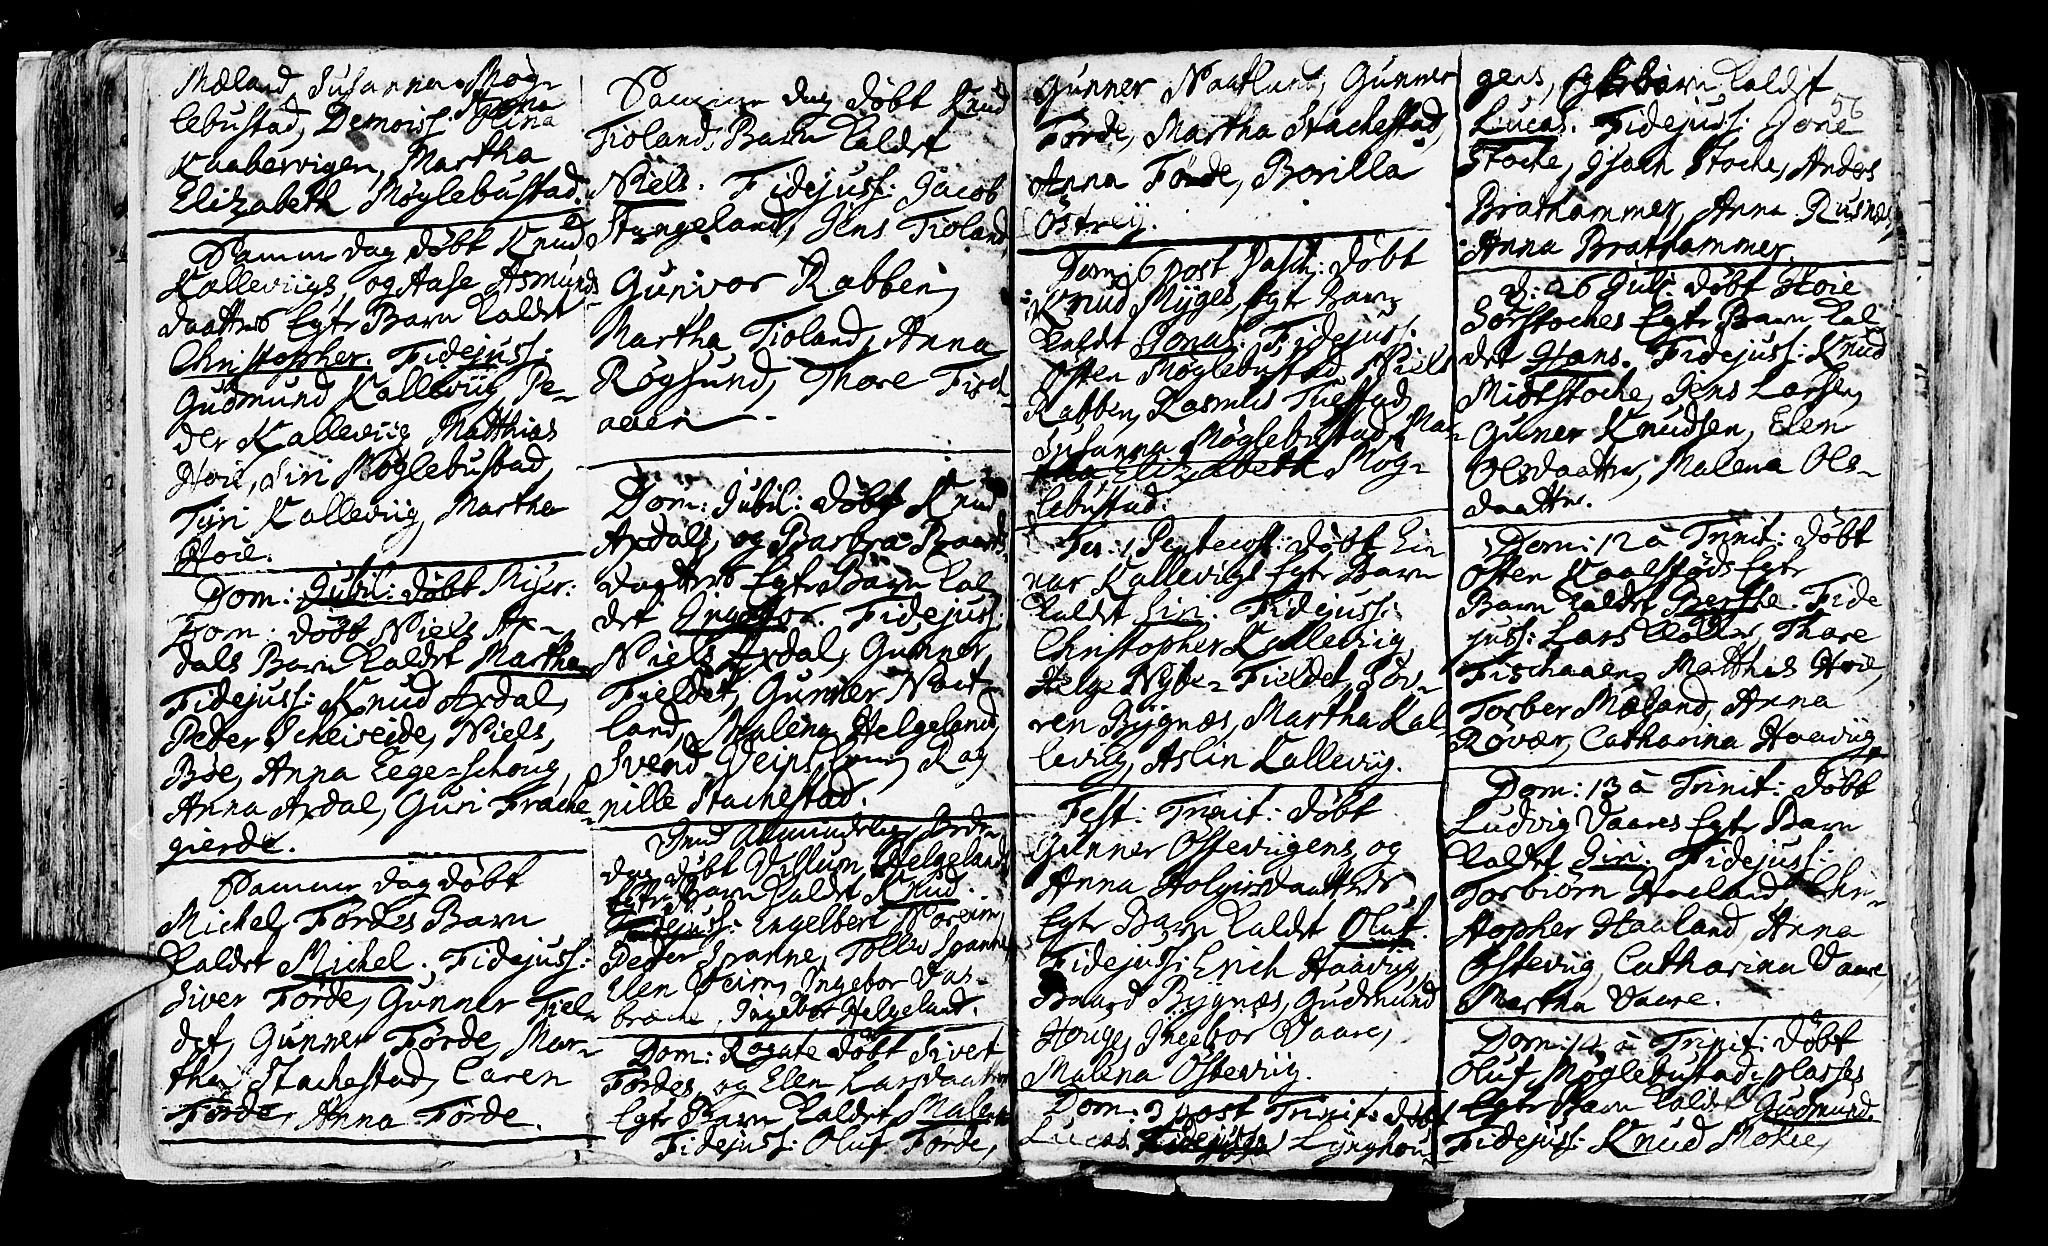 Mæland, Susanna Møg-
lebustad, Demois: Olina
Kaabervigen, Martha
Elizabeth Møglebustad.
Samme dag døbt Knud
Kalleviigs og Aase Asmunds
daatters Egte Barn kaldet
Christopher. Fidejuss:
Gudmund Kalleviig, Pe-
der Kalleviig, Matthias
Hoie, Siri Møglebustad,
Tyri Kalleviig, Martha
Hoie.
Dom: Jubil: døbt Miser:
Dom: døbt Niels Ax-
dals Barn kaldet Martha
Fidejuss: Knud Axdal,
Peder Scheiseide, Niels
Bøe, Anna Eege-schoug,
Anna Axdal, Guri Frache-
gierde.
Samme dag døbt
Michel Førdes Barn
kaldet Michel. Fidejuss:
Siver Førde, Gunner Fiel-
det, Gunner Førde, Mar-
tha Stachestad, Caren
Førde, Anna Førde.
Samme dag døbt Knud
Tiolands Barn kaldet
Niels. Fidejuss: Jacob
Stangeland, Jens Tioland,
Gunvor Rabben,
Martha Tioland, Anna
Røgsund, Thore Fisch-
aaen
Dom: Jubil: døbt Knud
Axdals og Barbra Baards
daatters Egte Barn kal
det Ingebor. Fidejuss:
Niels Axdal, Gunner
Fieldet, Gunner Naut-
land, Malena Helgeland,
Svend Rag
nille Stachestad.
Dend Almindelig Bede-
dag døbt Villum Helgelands
Egte Barn kaldet Knud.
Fidejuss: Engelbert Noreim,
Peder Spanne, Tollev Spanne,
Elen Ingebor Vas-
bræche, Ingebor Helgeland.
Dom: Rogate døbt Sivert
Førdes og Elen Larsdaatters
Egte Barn kaldet Malena
Fidejuss: Oluf Førde,
Gunner Nautland, Gunner
Førde, Martha Stachestad,
Anna Førde, Borilla
Østrey.
56
Dom: 6 post Pasch: døbt
Knud Myges Egte Barn
kaldet Jonas. Fidejuss:
Osten Møglebustad, Niels
Rabben, Rasmus Tuestad,
Susanna Møglebustad, Mar-
tha Elizabeth Møg-
lebustad.
Fer: 1 Pentecost: døbt Ei
nar Kallevigs Egte Barn
kaldet Siri. Fidejuss:
Christopher Kallevig,
Helge Nybe-Fieldet, Sør-
ren Bygnæs, Martha Kal
levig, Aslin Kallevig.
Fest: Trinit: døbt
Gunner Ostevigens og
Anna Holgiersdaatters
Egte Barn kaldet Oluf.
Fidejuss: Erich Haavig,
Baard Bygnæs, Gudmund
Houge, Ingebor Vaare,
Malena Ostevig.
Dom: 3 post Trinit: døbt
Lucas Fidejuss Lynghou-
gens, Egte barn kaldet
Lucas. Fidejuss: Jone
Stoche, Isach Stoche, Anders
Brathammer, Anna Rusnes,
Anna Brathammer.
D: 26 Juli døbt Hoie
Sørstoches Egte Barn kal
det Hans. Fidejuss: Knud
Midtstoche, Jens Larsen,
Guner Knudsen, Elen
Olsdaatter, Malena Ols-
daatter.
Dom: 12 à Trinit: døbt
Osten Egte
Barn kaldet Berthe. Fide
juss: Lars Thore
Fischaaen, Matthis Hoie,
Torber Mæland, Anna
Rovær, Catharina Haavig.
Dom: 13 à Trinit: døbt
Ludvig Vaares Egte Barn
kaldet Siri. Fidejuss:
Torbiørn Haaland, Chri-
stopher Haaland, Anna
Ostevig, Catharina Vaare,
Martha Vaare.
Dom: 14 à Trinit: døbt
Oluf Møglebustad-plasses
Egte Barn kaldet Gudmund.
Fidejuss: Knud Mokie,